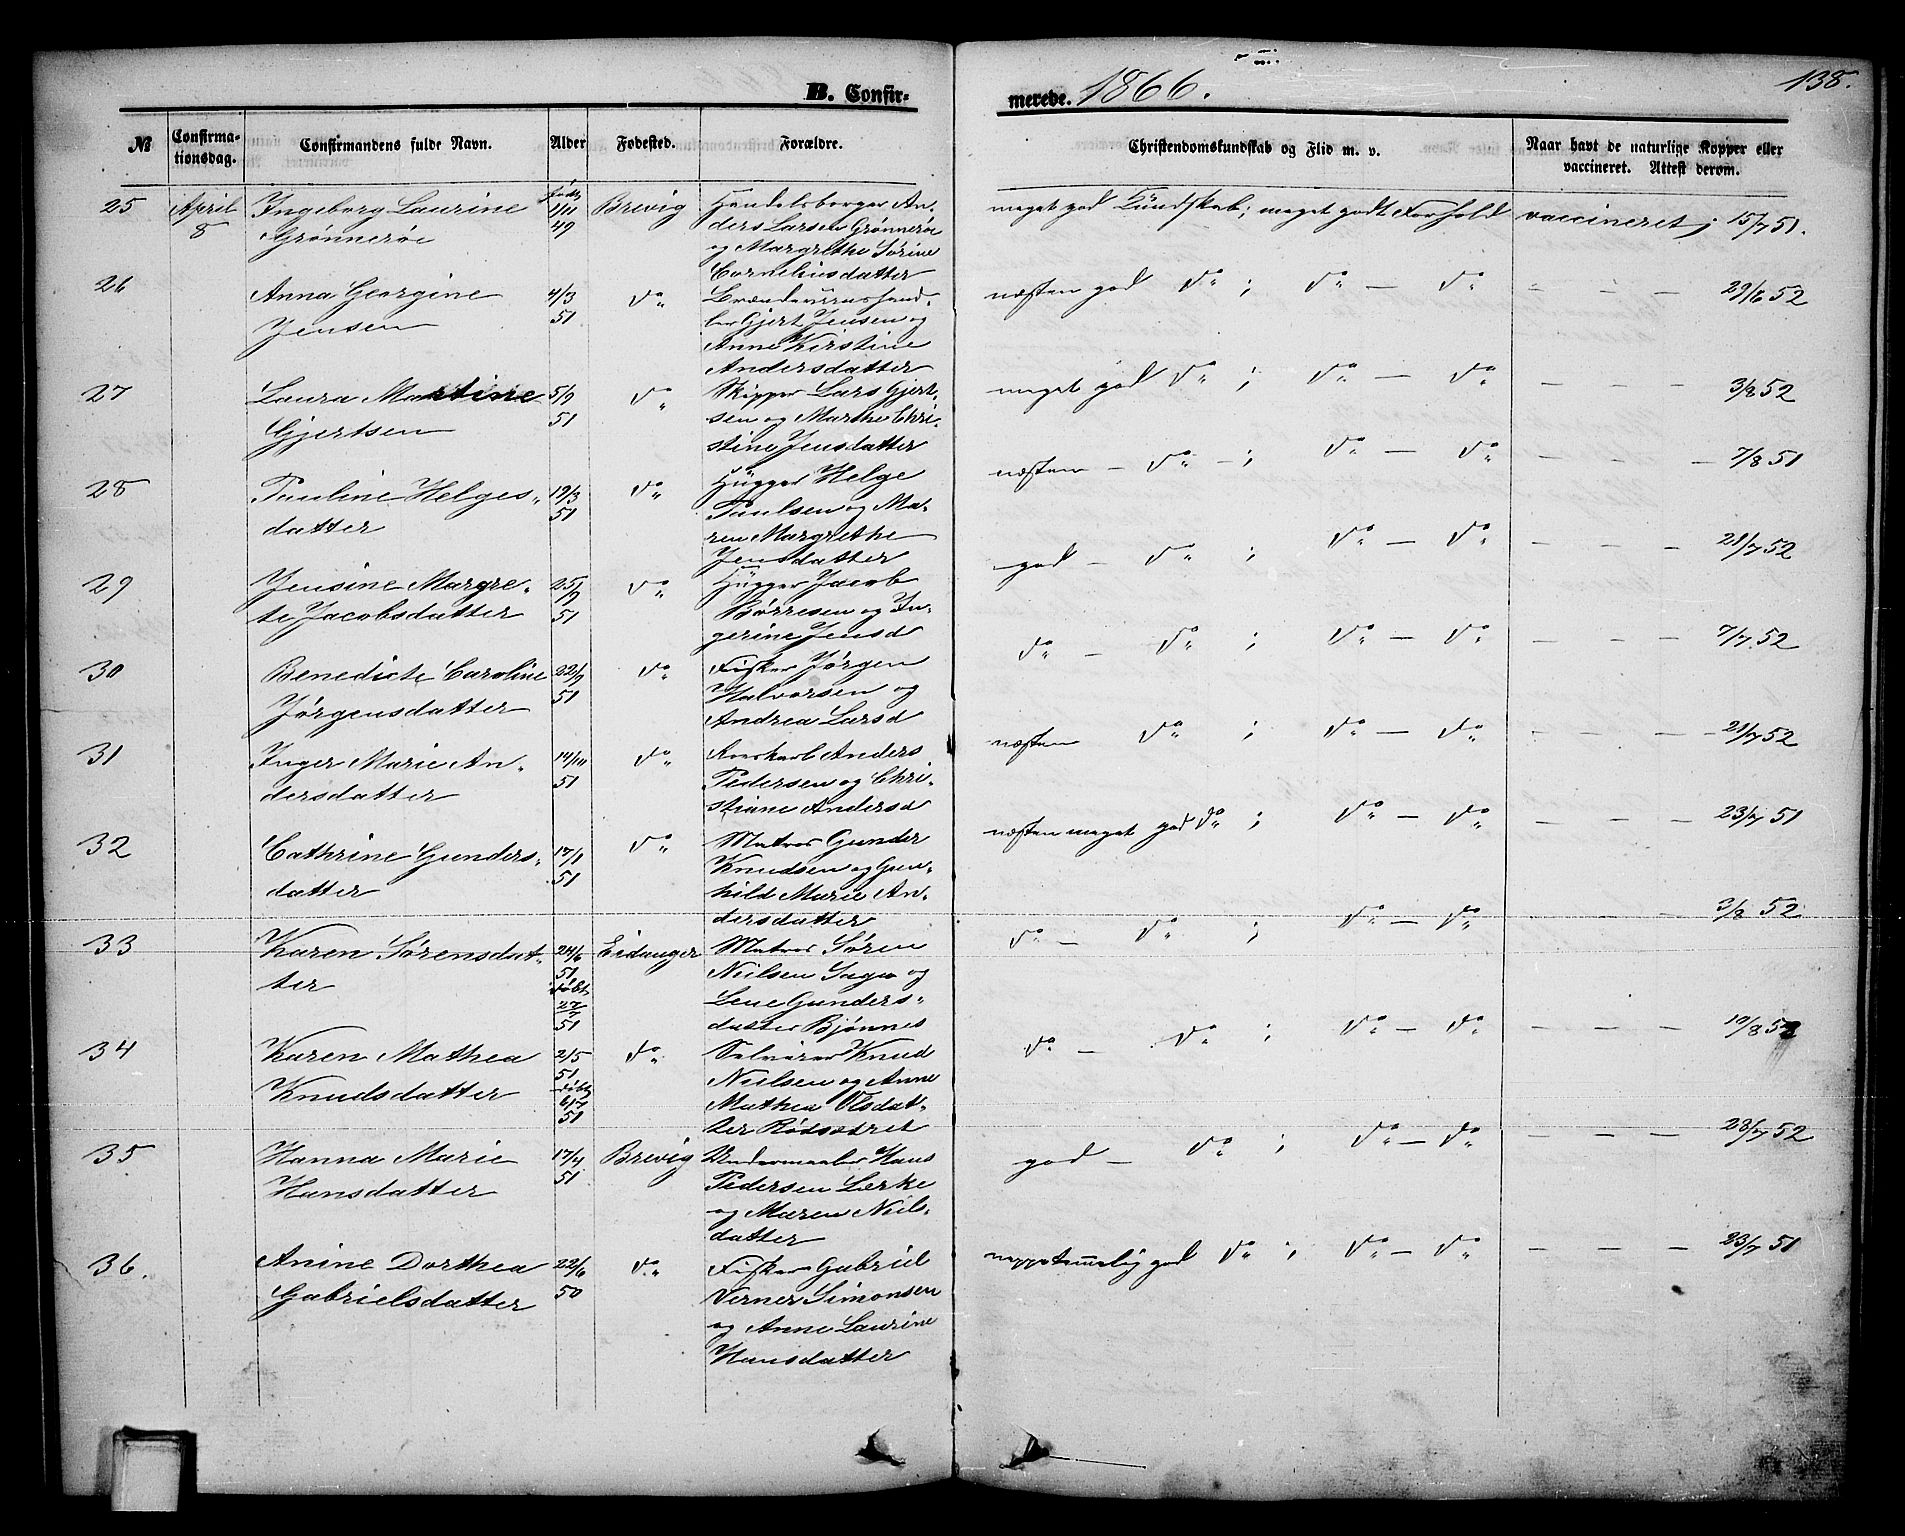 B. Confir-
merede. 1866.
138.
№ Confirma-tionsdag. Confirmandens fulde Navn. Alder Fødested. Forældre. Christendomskundskab og Flid m. v. Naar havt de naturlige Kopper eller vaccineret. Attest derom.
25 April Ingeborg Laurine født 1/11 Brevig Handelsborger An- meget god Kundskab; meget godt Forhold vaccineret; 15/7 51.
8 Grønnerøe 49 ders Larsen Grønnerøe
og Margrethe Sørine
Corneliusdatter
26 Anna Georgine 4/3 do Brændeviinshand- næsten god do; do — do - — — 29/6 52
Jensen 51 ler Gjert Jensen og
Anne Kirstine
Andersdatter
27 Laura Martine 5/9 do Skipper Lars Gjert- meget god do; do — do — — — 3/8 52
Gjertsen 51 sen og Marthe Chri-
stine Jensdatter
28 Pauline Helges- 19/3 do Hugger Helge næsten — do —; do — do — — — 7/8 51
datter 51 Paulsen og Ma-
ren Margrethe
Jensdatter
29 Jensine Margre- 25/9 do Hugger Jacob god — do; do — do — — — 21/7 52
te Jacobsdatter 51 Børresen og In-
gerine Jensd
30 Benedicte Caroline 22/9 do Fisker Jørgen do — do; do — do — — — 7/7 52
Jørgensdatter 51 Halvorsen og
Andrea Larsd
31 Inger Marie An- 14/10 do Anders næsten do; do — do — — — 21/7 52
dersdatter 51 Pedersen og Chri-
stiane Andersd
32 Cathrine Gunders- 17/1 do Matros Gunder næsten meget god do; do — do — — — 23/7 51
datter 51 Knudsen og Gun-
hild Marie An-
dersdatter
33 Karen Sørensdat- 24/6 Eidanger Matros Søren do — do; do — do — — — 3/8 52
ter 51 Nielsen og
døbt 27/7 Lene Gunders-
51 datter Bjønnes
34 Karen Mathea 2/5 do Selveier Knud do — do; do — do — — — 19/8 52
Knudsdatter 51 Nielsen og Anne
døbt 6/7 Mathea Olsdat-
51 ter Rødsætret
35 Hanna Marie 17/4 Brevig Hans god — do; do — do — — — 28/7 52
Hansdatter 51 Pedersen Lerke
og Maren Niels-
datter
36. Anine Dorthea 22/6 do Fisker Gabriel neppe temmelig god do; do — do — — — 23/7 51
Gabrielsdatter 50 Verner Simonsen
og Anne Laurine
Hansdatter